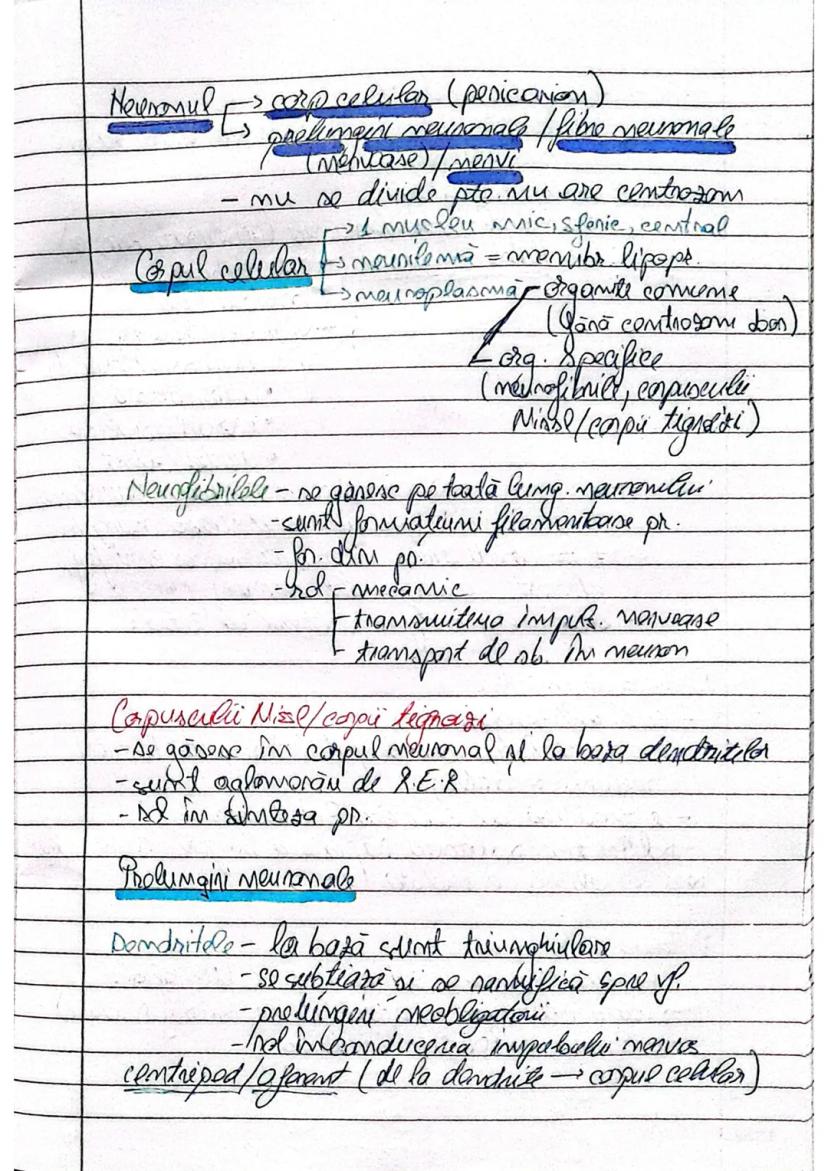 Neuronul → corp celular (pericarion)
→ prelungiri neuronale / fibre neuronale
(nervoase) / nervi
- nu se divide ptc. nu are centrozom
→ 1 nucleu mic, sferic, central
Corpul celular → neurilemă = membr. lipopr.
→ neuroplasmă organite comune
(fără centrozom doar)
org. specifice
(neurofibrile, corpusculii
Nissl / corpii tigroizi)
Neurofibrilele - se găsesc pe toată lung. neuronului
- sunt formațiuni filamentoase pr.
- for. din pr.
- rol - mecanic
- transmiterea impuls. nervoase
- transport de sb. în neuron
Corpusculii Nissl / corpii tigroizi
- se găsesc în corpul neuronal și la baza dendritelor
- sunt aglomerări de R.E.R
- rol în sinteza pr.
Prelungiri neuronale
Dendritele - la bază sunt triunghiulare
- se subțiază și se ramifică spre vf.
- prelungiri neobligatorii
- rol în conducerea impulsului nervos
centripet / aferent (de la dendrite → corpul celular)